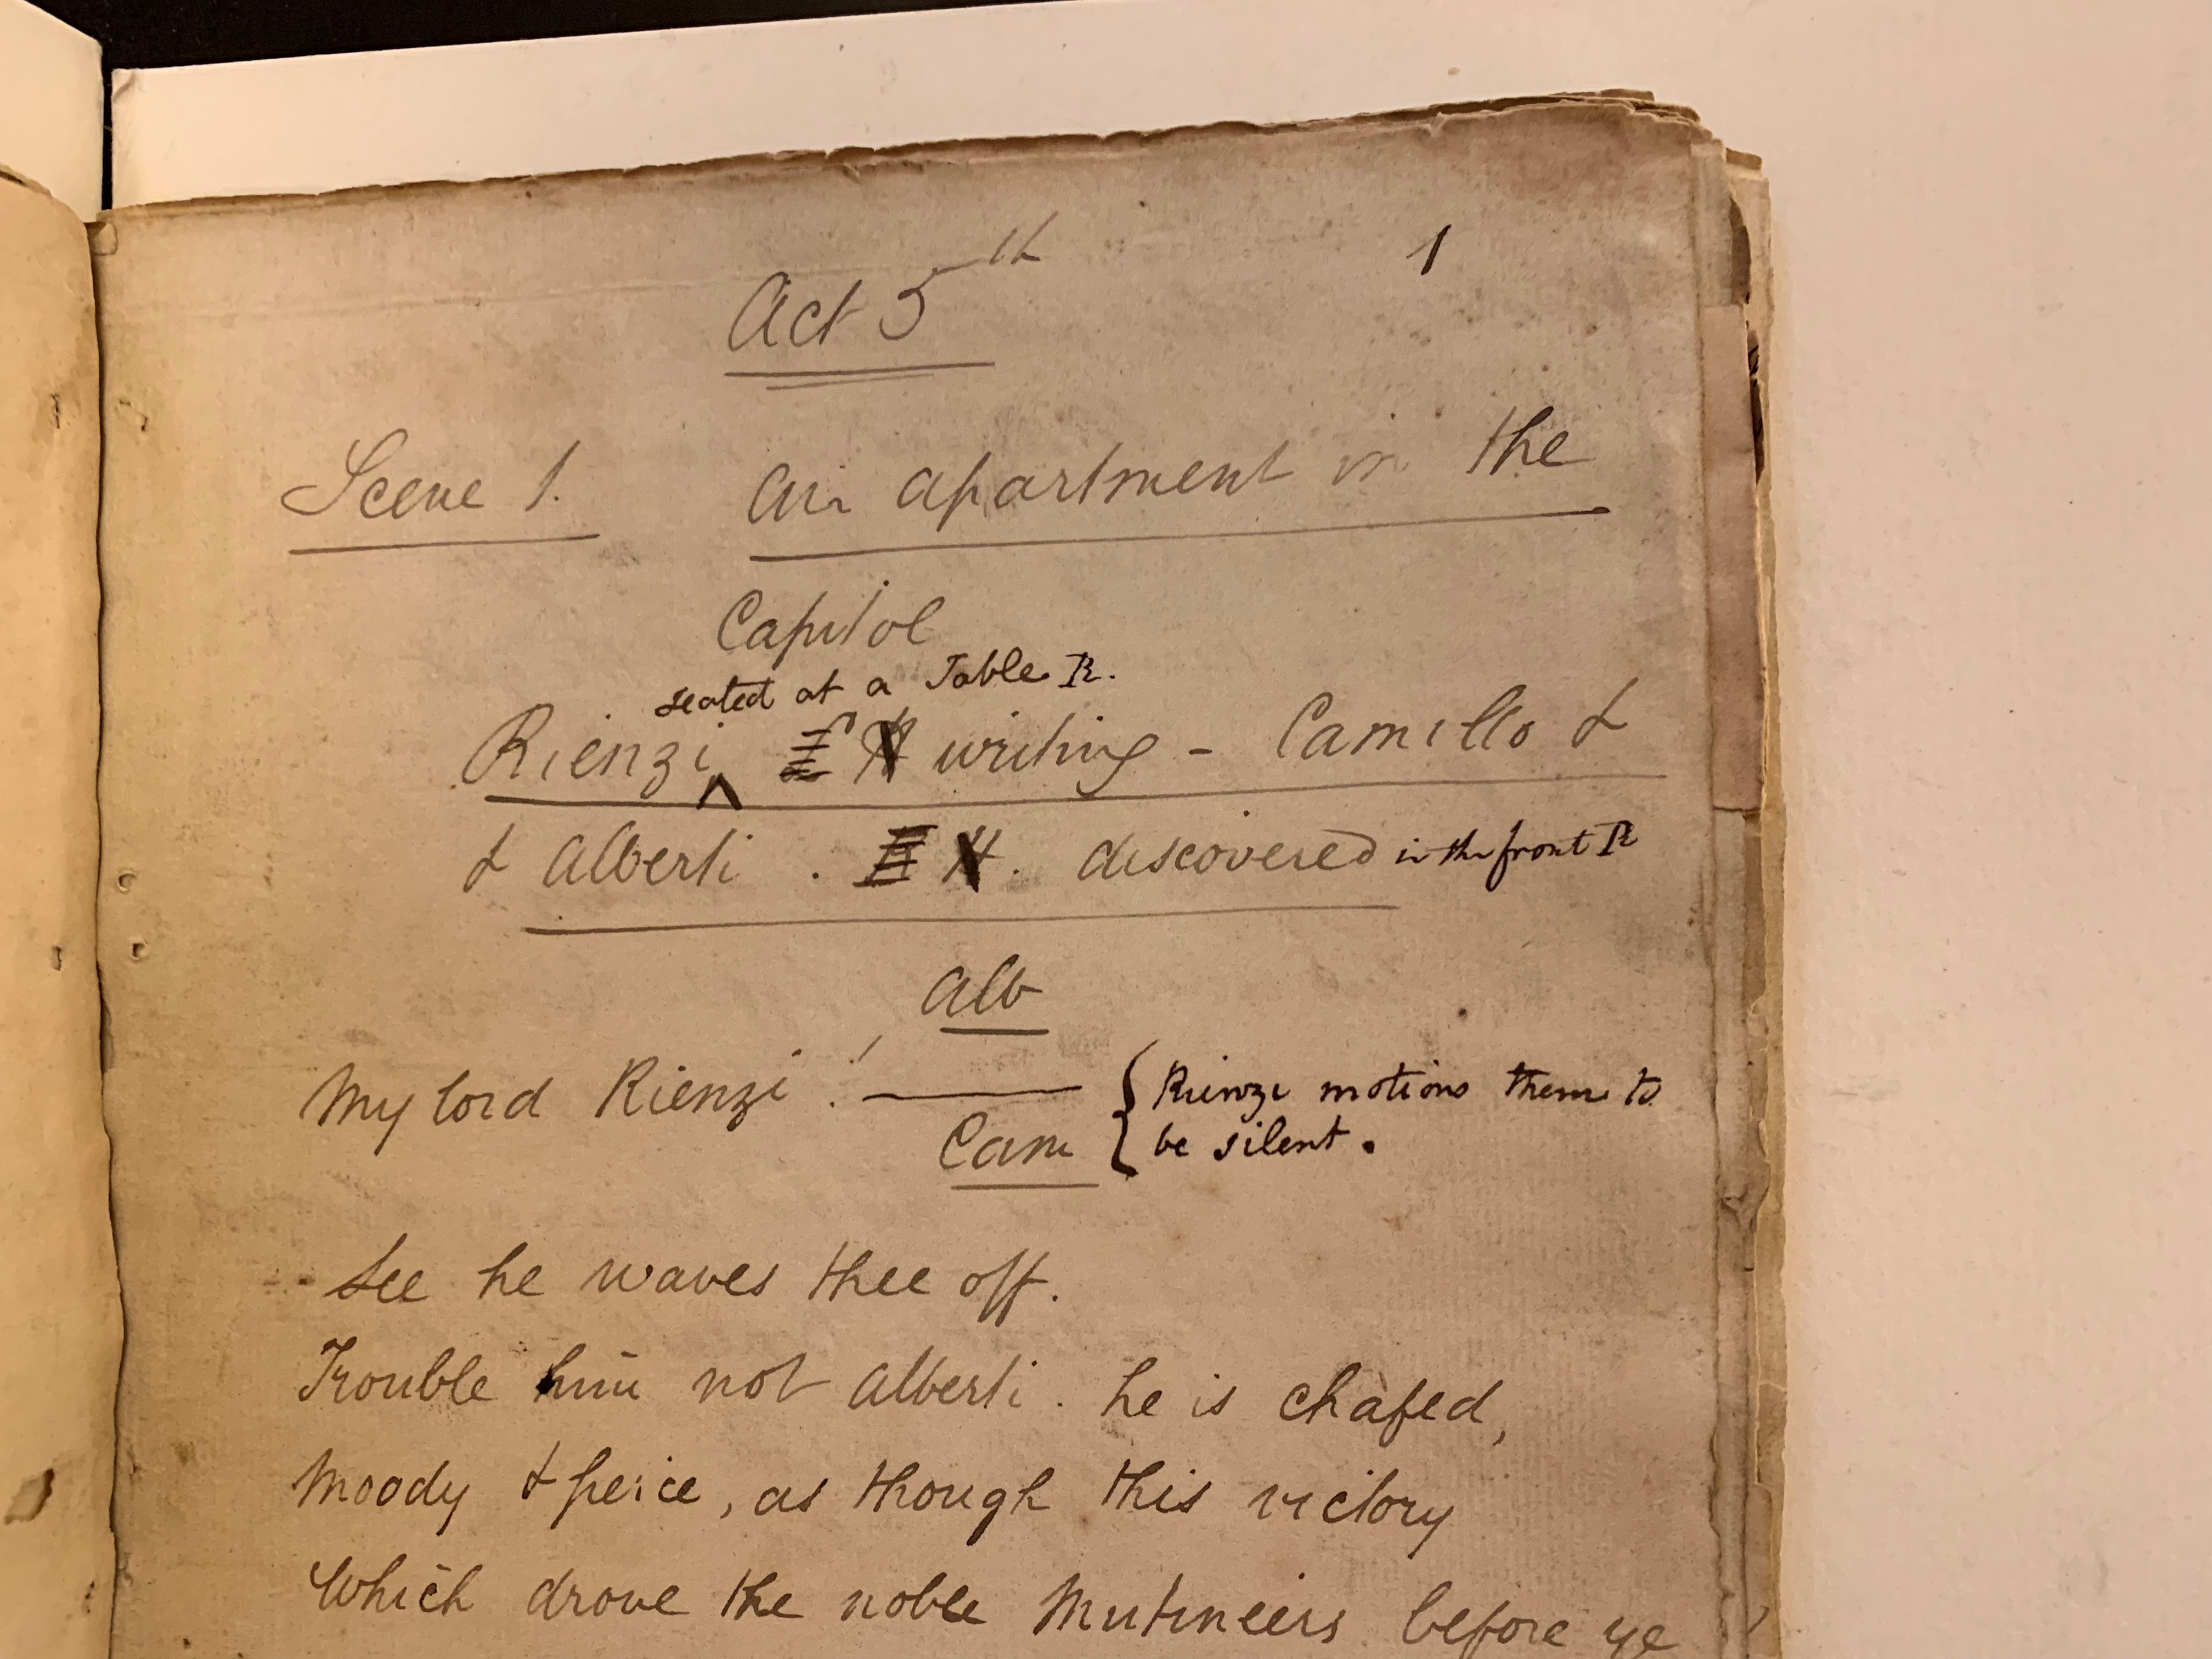 Act 5th
1
Scene 1. An apartment in the
Capitol
seated at a Table R.
Rienzi writing - Camillo &
& Alberti . discovered in the front R
Alb
My lord Rienzi !
Cam
Rienzi motions them to
be silent.
See he waves thee off.
Trouble him not Alberti. he is chafed,
Moody & feirce, as though this victory
Which drove the noble Mutineers before ye